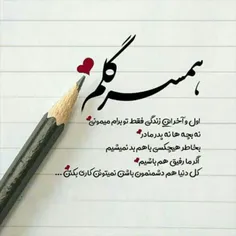 همسر گلم
اول و آخر این زندگی فقط تو برام میمونی
نه بچه ها نه پدر مادر
بخاطر هیچکسی باهم بد نمیشیم
اگر ما رفیق هم باشیم
کل دنیا هم دشمنمون باشن نمیتونن کاری بکنن ...